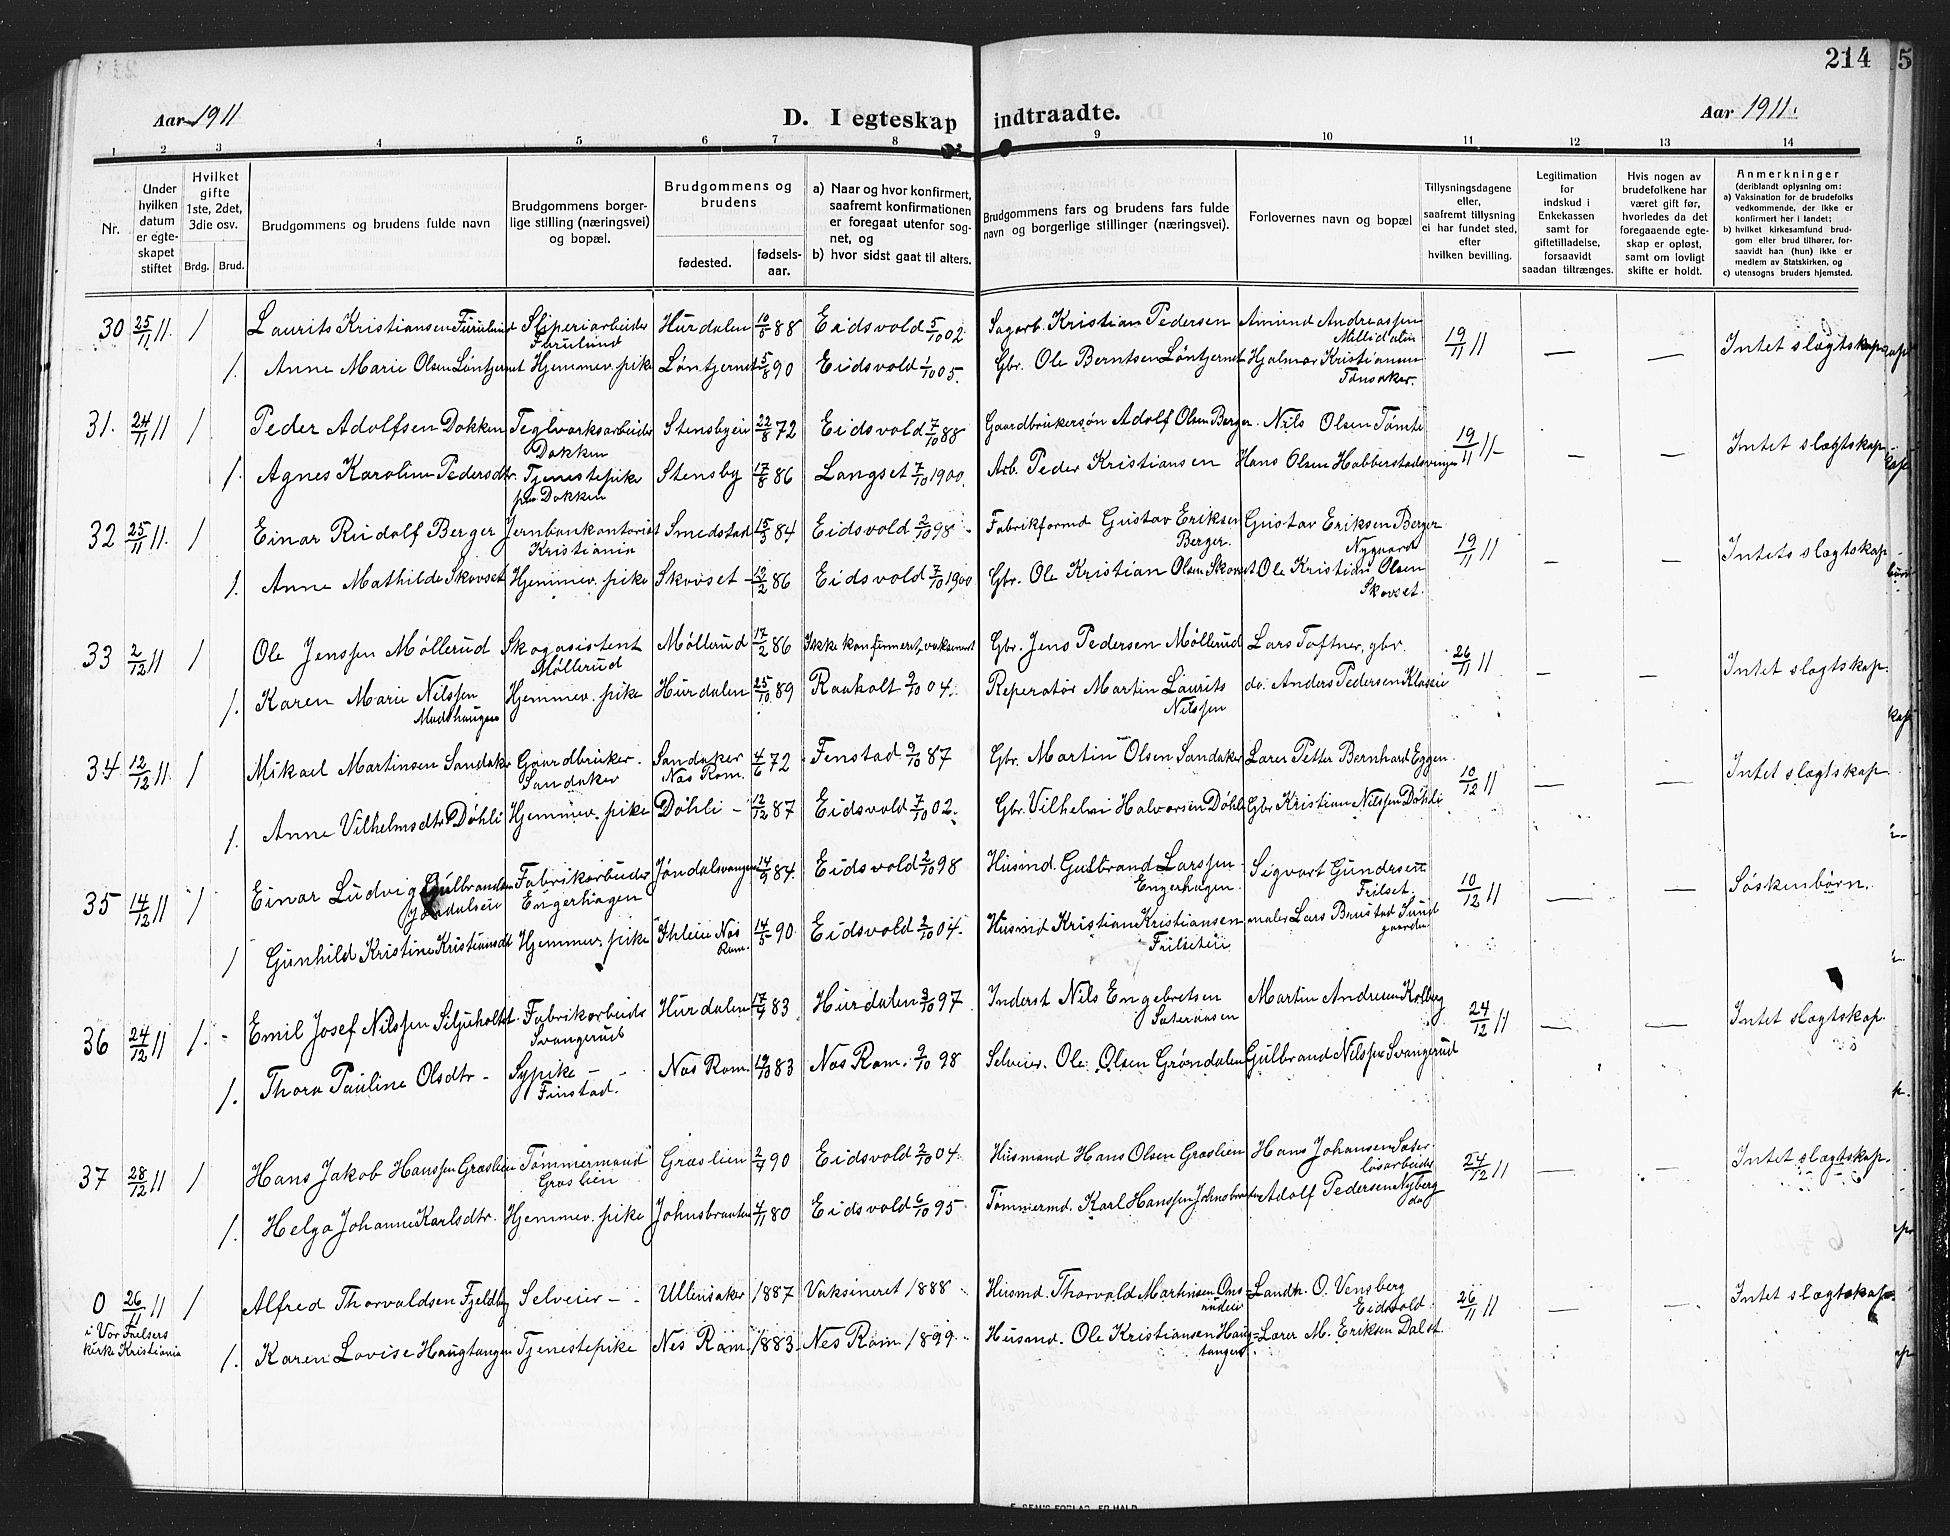 214
5
Aar 1911
D. I egteskap indtraadte.
Aar 1911.
1 2 3 4 5 6 7 8 9 10 11 12 13 14
Nr.
Under hvilken datum er egteskapet stiftet
Hvilket gifte 1ste, 2det, 3die osv.
Brdg. Brud.
Brudgommens og brudens fulde navn
Brudgommens borgerlige stilling (næringsvei) og bopæl.
Brudgommens og brudens
fødested. fødselsaar.
a) Naar og hvor konfirmert, saafremt konfirmationen er foregaat utenfor sognet, og
b) hvor sidst gaat til alters.
Brudgommens fars og brudens fars fulde navn og borgerlige stillinger (næringsvei).
Forlovernes navn og bopæl
Tillysningsdagene eller, saafremt tillysning ei har fundet sted, efter hvilken bevilling.
Legitimation for indskud i Enkekassen samt for giftetilladelse, forsaavidt saadan tiltrænges.
Hvis nogen av brudefolkene har været gift før, hvorledes da det foregaaende egteskap er opløst, samt om lovligt skifte er holdt.
Anmerkninger (deriblandt oplysning om: a) Vaksination for de brudefolks vedkommende, der ikke er konfirmert her i landet; b) hvilket kirkesamfund brudgom eller brud tilhører, forsaavidt han (hun) ikke er medlem av Statskirken, og c) utensogns bruders hjemsted.
30 25/11 11. / Laurits Kristiansen Furulund Sliperiarbeider Furulund Hurdalen 10/5 88 Eidsvold 5/10 02 Sagarb. Kristian Pedersen Amund Andreassen Millidalen 19/11 11 — — Intet slægtskap
/. Anne Marie Olsen Løntjernet Hjemmev. pike Løntjernet 5/8 90 Eidsvold 1/10 05. Gbr. Ole Berntsen Løntjernet Hjalmar Kristiansen Tønsaker.
31. 24/11 11 / Peder Adolfsen Dokken Teglverksarbeider Dokken Stensbyeie 22/8 72 Eidsvold 7/10 88 Gaardbrukersøn Adolf Olsen Berger. Nils Olsen Tømte 19/11 11 - - Intet slægtskap
/. Agnes Karoline Pedersdtr. Tjenestepike paa Dokken Stensby 17/8 86 Langset 7/10 1900. Arb. Peder Kristiansen Hans Olsen Habberstadsvingen
32 25/11 11. / Einar Rudolf Berger Jernbankontorist Kristiania Smedstad 15/3 84 Eidsvold 2/10 98 - Fabrikformd Gustav Eriksen Berger. Gustav Eriksen Berger Nygaard 19/11 11 - - Intets slægtskap
/. Anne Mathilde Skovset Hjemmev. pike Skovset - 12/2 86 Eidsvold 7/10 1900 Gbr. Ole Kristian Olsen Skovset Ole Kristian Olsen Skovset.
33 2/12 11 / Ole Jenssen Møllerud Skogasistent Møllerud Møllerud 17/2 86 Ikke konfirmeret, vaksinert Gbr. Jens Pedersen Møllerud Lars Toftner, gbr. 26/11 11 - - Intet slægtskap.
/. Karen Marie Nilssen Madshaugen Hjemmev. pike Hurdalen 25/10 89 Raaholt 9/10 04. Reperatør Martin Laurits Nilssen do. Anders Pedersen Klassie
34 12/12 11. / Mikael Martinsen Sandaker Gaardbruker. Sandaker Sandaker Nas Rom. 4/6 72 Fenstad 9/10 87 Gbr. Martin Olsen Sandaker Lærer Petter Bernhard Eggen 10/12 11 — — Intet slægtskap
/. Anne Vilhelmsdtr Døhli Hjemmev. pike Døhli - 12/12 87 Eidsvold 7/10 02. Gbr. Vilhelm Halvorsen Døhli Gbr Kristian Nilssen Døhli
35 14/12 11 / Einar Ludvig Gulbrandsen Jøndalseie Fabrikarbeider Engerhagen Jøndalsvangen 14/9 84. Eidsvold 2/10 98 Husmd. Gulbrand Larssen Engerhagen. Sigvart Gundersen Frilset. 10/12 11 — — Søskenbørn.
/ Gunhild Kristine Kristiansdt Hjemmev. pike Ihleie Nas Rom. 14/5 90 Eidsvold 2/10 04. Husmd Kristian Kristiansen Frilseteie maler Lars Brustad Sundgaarden
36 24/12 11 /. - Emil Josef Nilssen Siljuholtet Fabrikarbeider Svangerud Hurdalen 17/4 83 Hurdalen 3/10 97 Inderst Nils Engebretsen Sateraasen Martin Andresen Kolberg 24/12 11 — — Intet slægtskap.
/. Thora Pauline Olsdtr - Sypike - - Finstad. Nas Rom. 19/10 83 Nas Rom. 9/10 98 Selveier. Ole Olsen Grøndalen Gulbrand Nilssen Svangerud
37 28/12 11 / Hans Jakob Hanssen Græslien Tømmermand Græslien Græslien 2/4 90 Eidsvold 2/10 04. Husmand Hans Olsen Græslien Hans Johansen Sæter løsarbeider 24/12 11 — — Intet slægtskap.
/. Helga Johanne Karlsdtr. Hjemmev. pike Johnsbraaten 4/11 80 Eidsvold 6/10 95 Tømmermd. Karl Hanssen Johnsbraaten Adolf Pedersen Nyberg do
0 26/11 11 / Alfred Thorvaldsen Fjeldby Selveier - - Ullensaker 1887 Vaksineret 1888 Husmd. Thorvald Martinsen Landh. O. Vensberg Eidsvold. 26/11 11 — - Intet slægtskap.
i Vor Frelsers kirke Kristiania
/. Karen Lovise Haugtangen Tjenestepike Nes Rom. 1883. Nes Rom 1899. Husmd. Ole Kristiansen Haugtangen Lærer M. Eriksen Dalst.